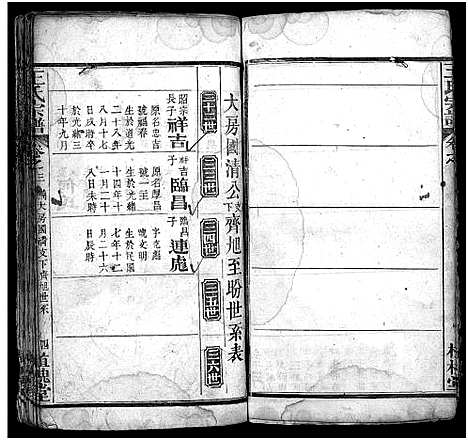 王氏宗譜
大房國清公支下齊旭至聆世系表
三十二世
三三世
三四世
三五世
三六世
昭宗長子
祥吉
原名忠吉
號福春
生於道光
二十八年
八月十七
日汝時卒
於光緒三
十年九月
祥吉子
臨昌
原名厚昌
號一至
生於光緒
十四年十
一月二十
八日未時
臨昌子
連彪
字克彪
號文明
生於民國
七年十二
月二十六
日辰時
王氏宗譜
大房國清支下齊旭世系
四
植槐堂